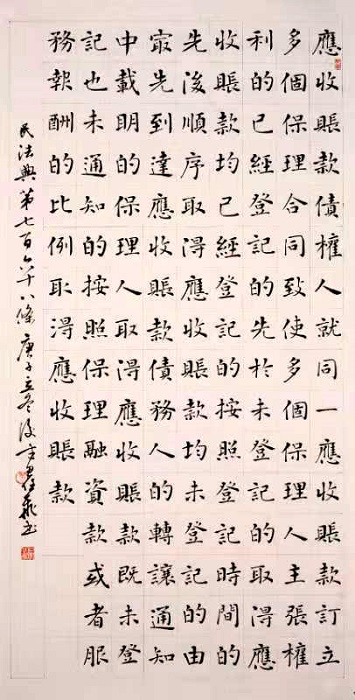 應收賬款債權人就同一應收賬款訂立
多個保理合同致使多個保理人主張權
利的已經登記的先於未登記的取得應
收賬款均已經登記的按照登記時間的
先後順序取得應收賬款均未登記的由
最先到達應收賬款債務人的轉讓通知
中載明的保理人取得應收賬款既未登
記也未通知的按照保理融資款或者服
務報酬的比例取得應收賬款
民法典第七百六十八條 庚子立冬後